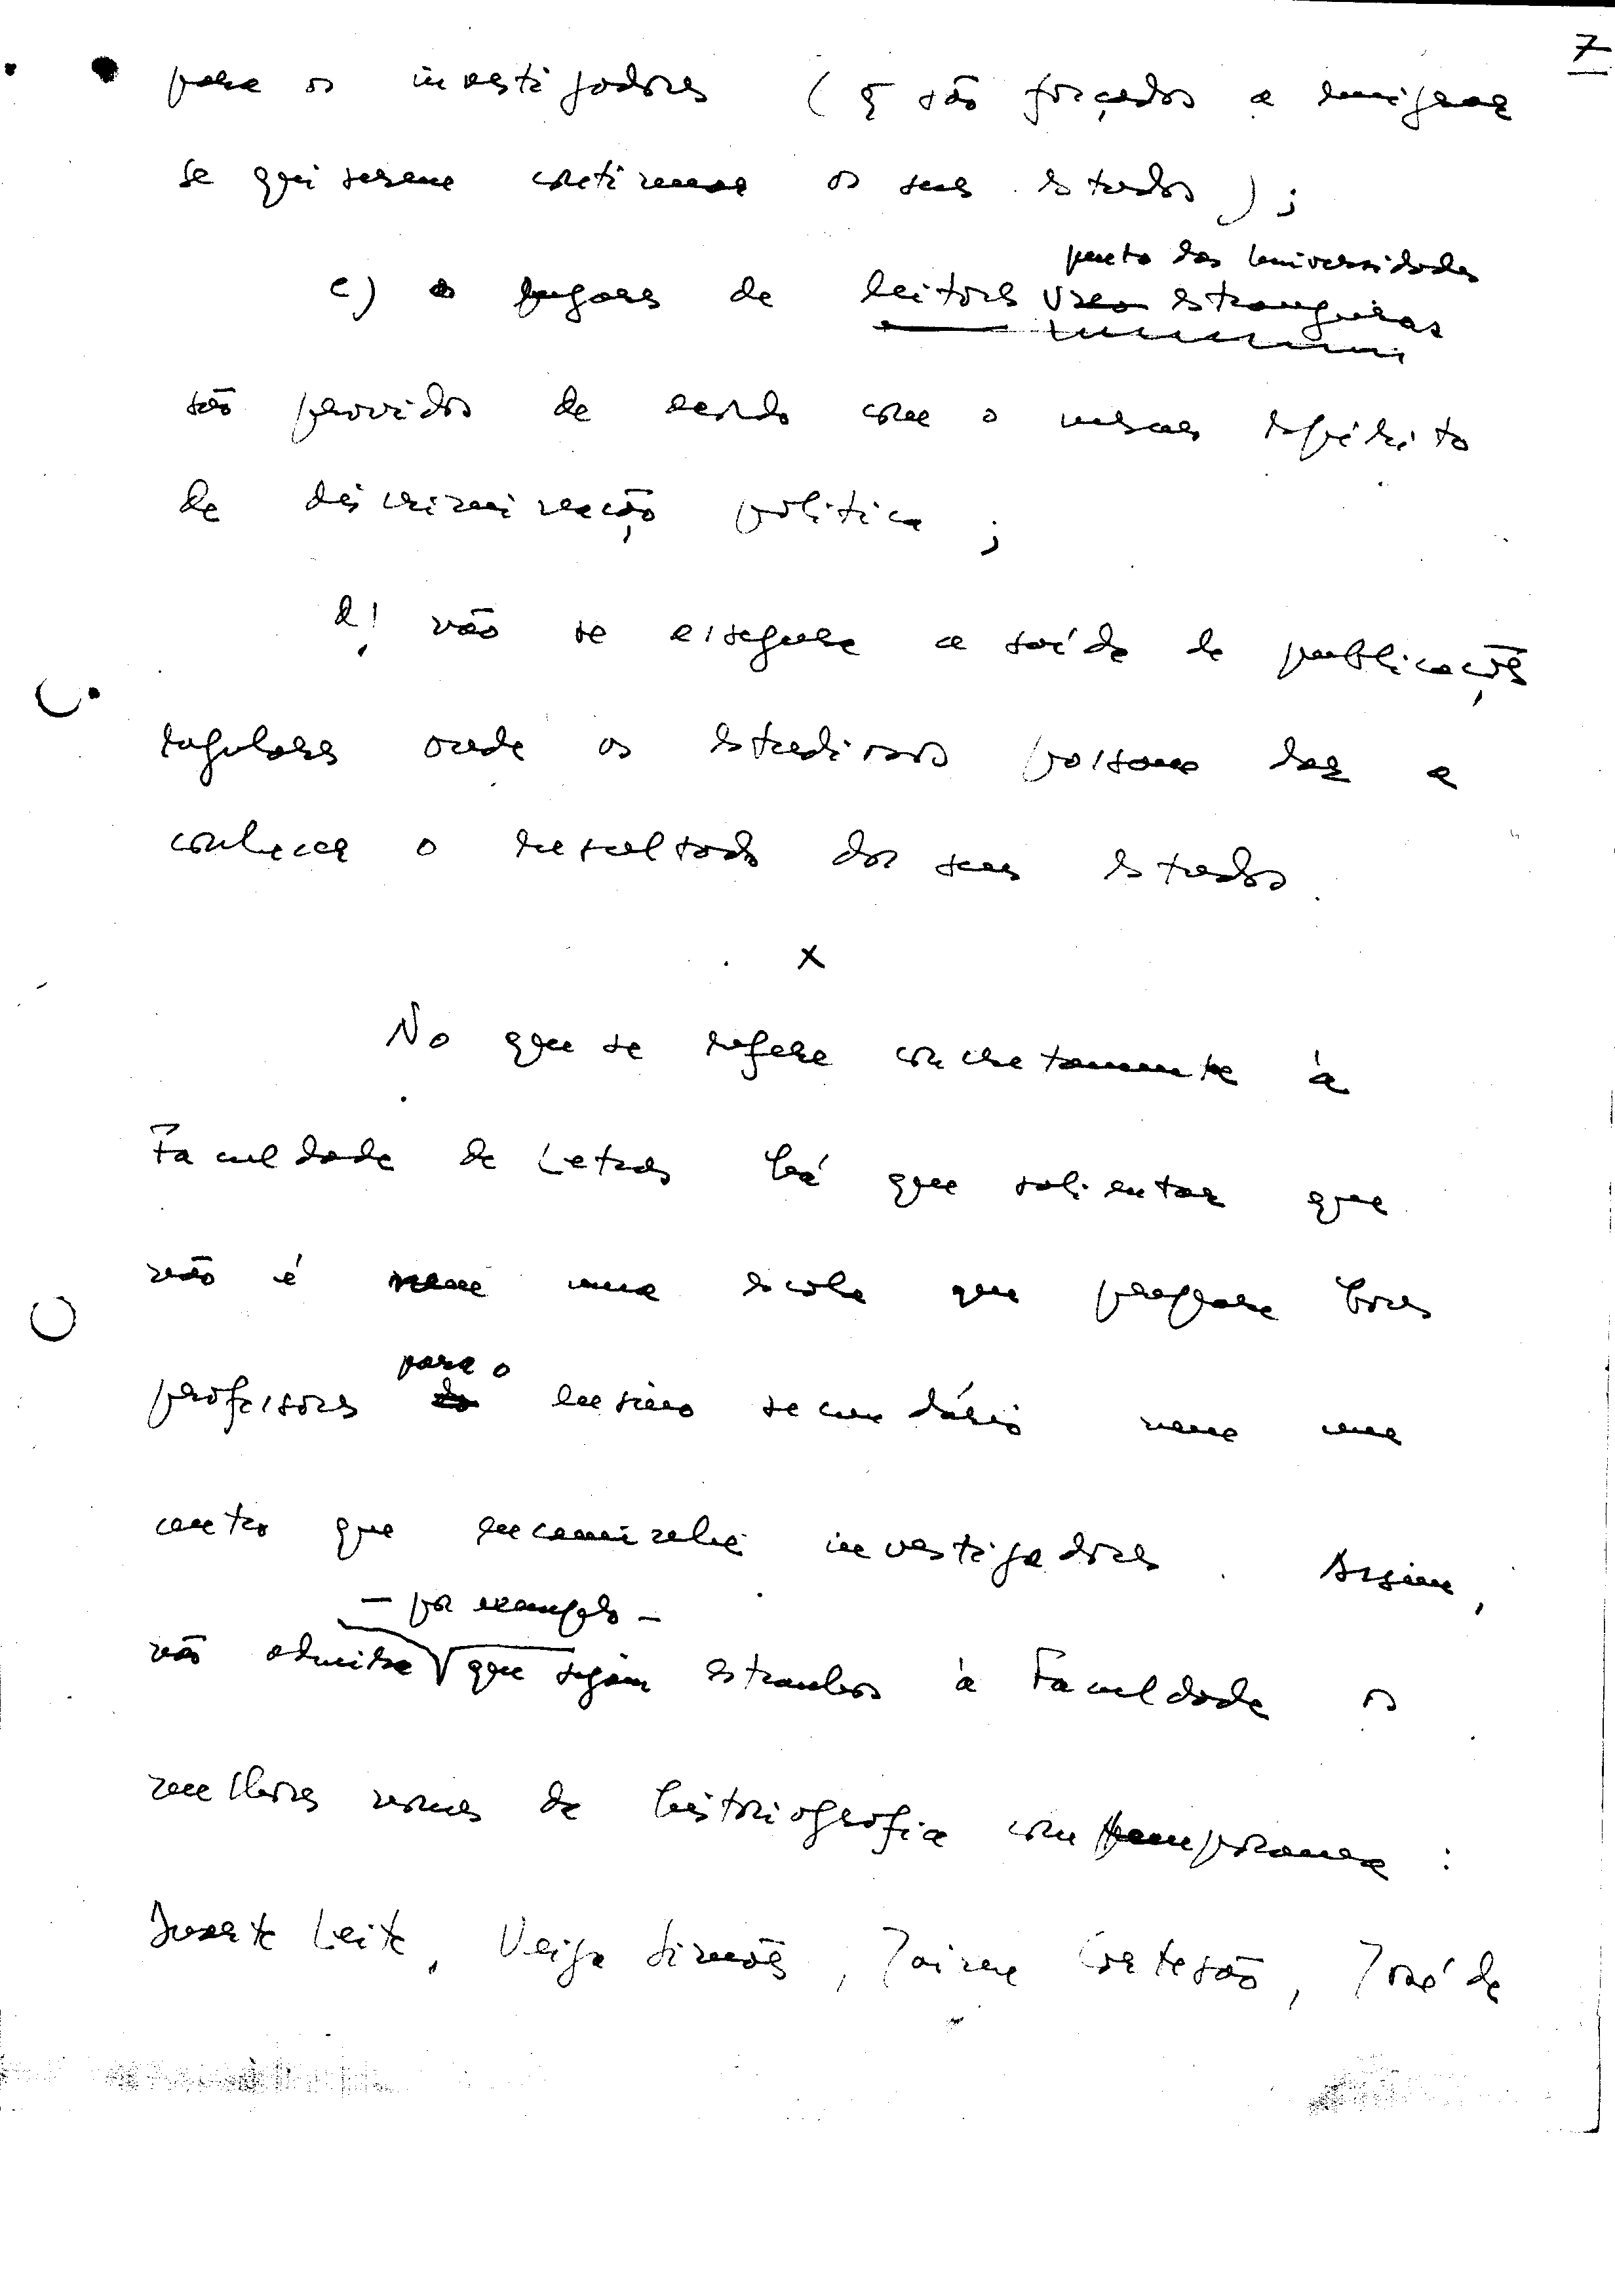 7
para os investigadores (q são forçados a emigrar
se quiserem continuar os seus estudos);
junto das Universidades
c) os lugares de leitores estrangeiras
são providos de acordo com o mesmo espírito
de discriminação politica;
d) não se assegura a saída de publicações
regulares onde os estudiosos possam dar a
conhecer o resultado dos seus estudos.
x
No que se refere concretamente à
Faculdade de Letras há que salientar que
não é nem uma escola que prepare bons
para o
professores do ensino secundário nem um
centro que encaminhe investigadores. Assim,
– por exemplo –
não admira que sejam estranhos à Faculdade os
melhores nomes da historiografia contemporanea:
Duarte Leite, Veiga Simões, Jaime Cortesão, José de